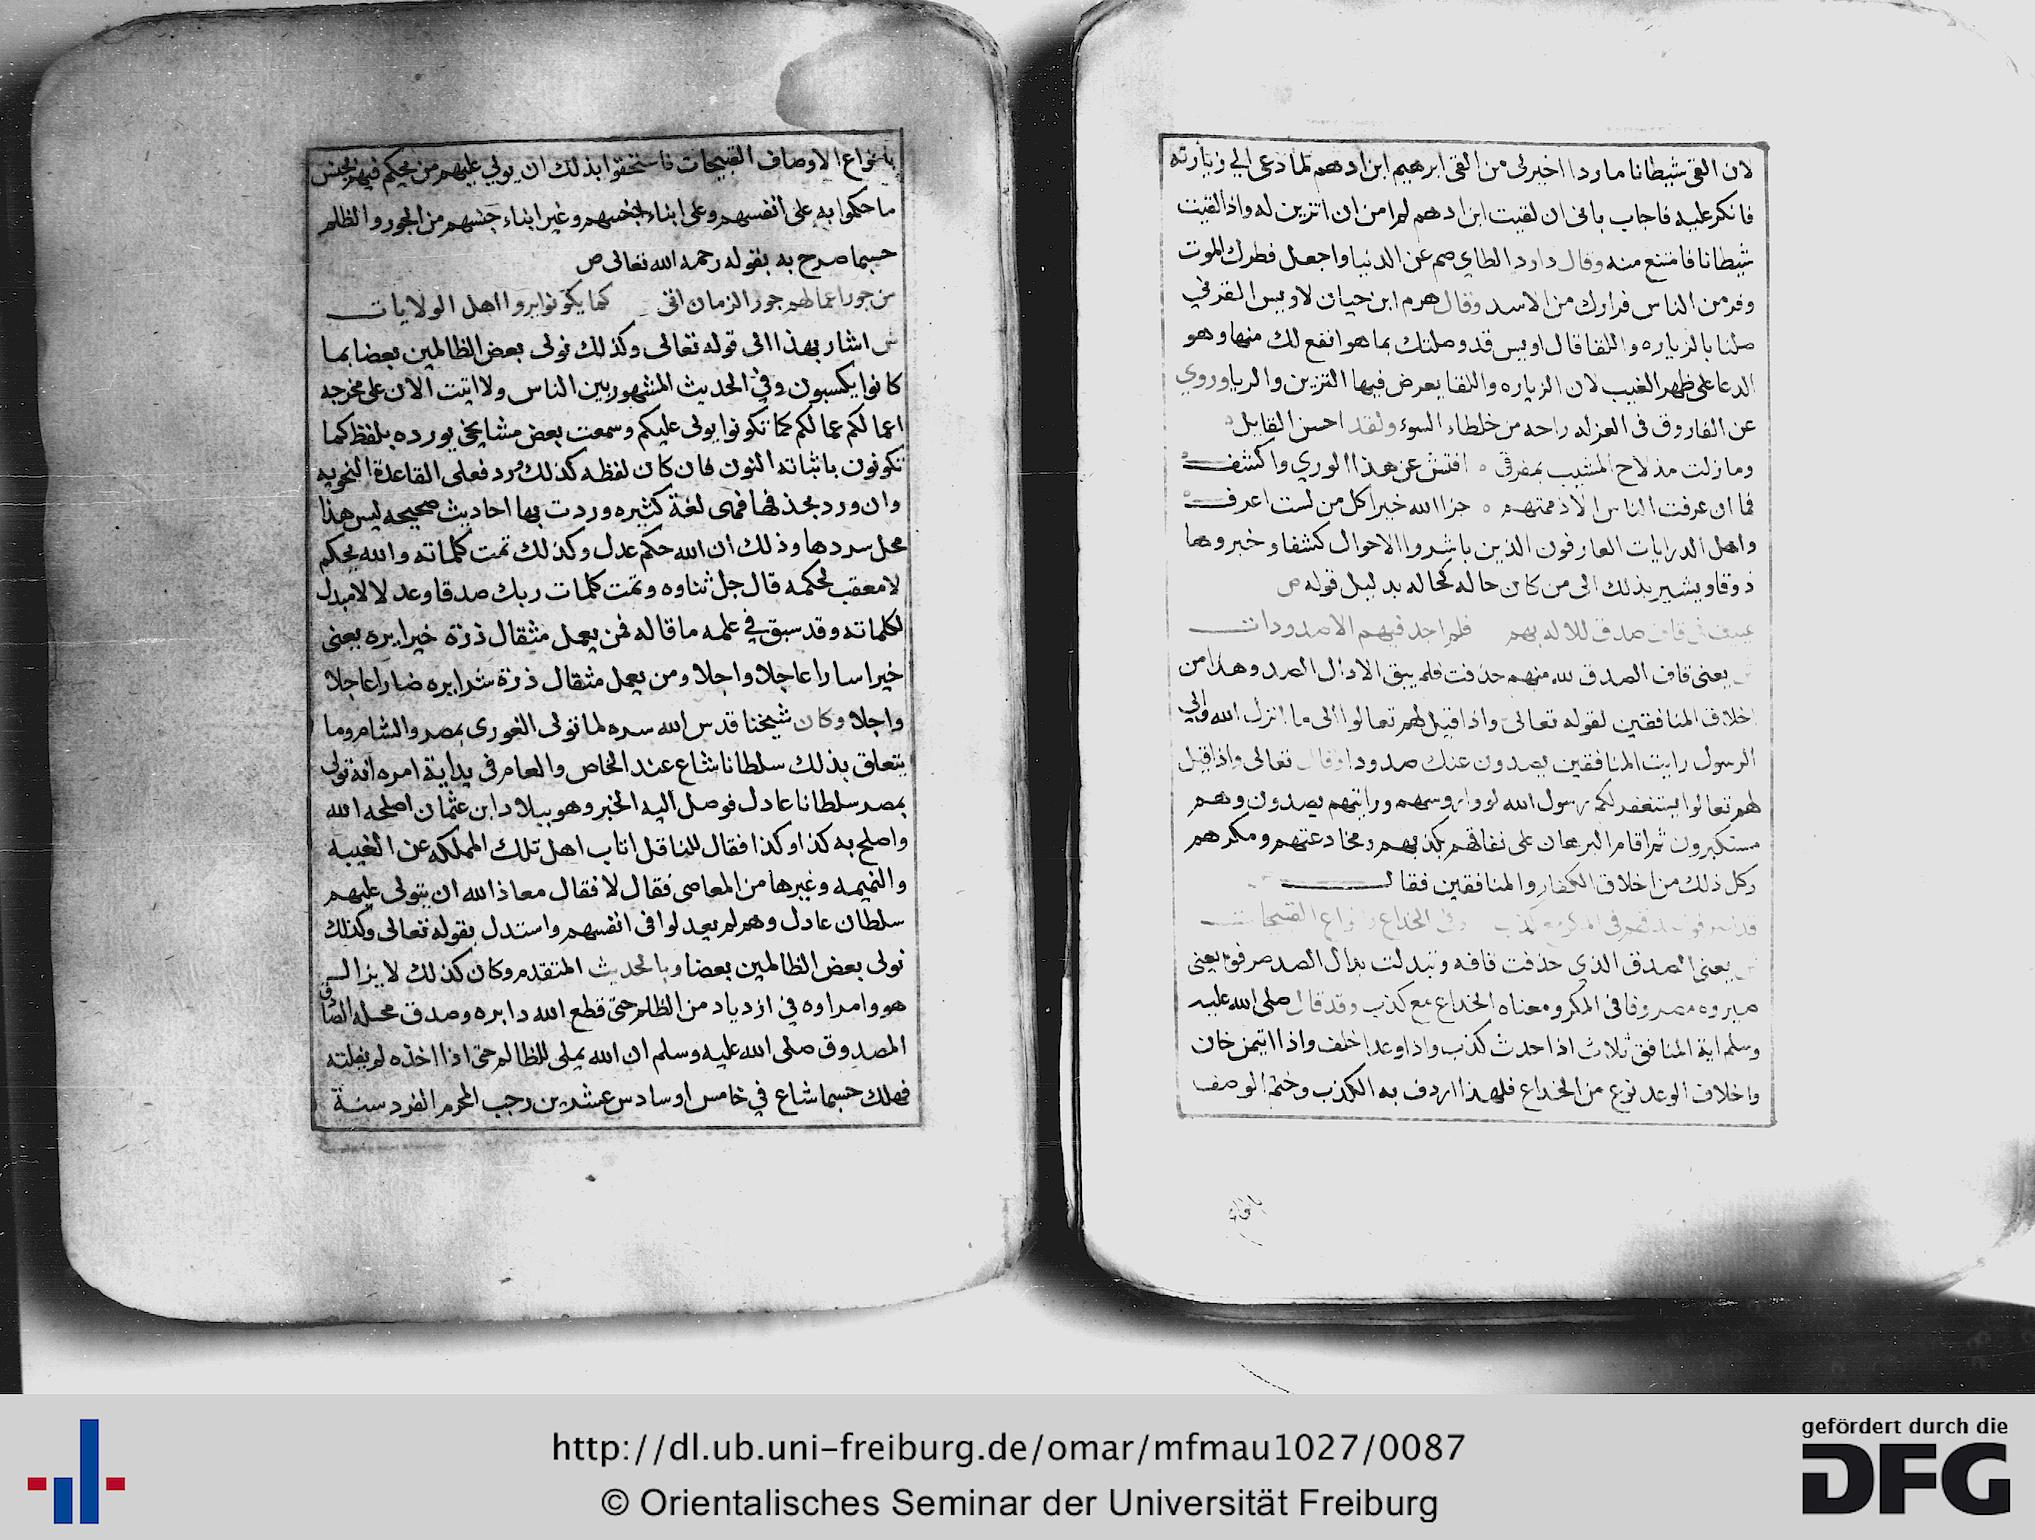 لان القى شيطانا ماردا اخير لى من القى ابرهيم ابن ادهم لما دعى الي زيارته
فانكر عليه فاجاب بانى ان لقيت ابن ادهم لم امن ان اتزين له واذا لقيت
شيطانا فامتنع منه وقال داود الطاي صم عن الدنيا واجعل فطرك الموت
وفر من الناس فرارك من الاسد وقال هرم ابن حيان لاويس القرني
صلنا بالزياره واللقا قال اويس قد وصلتك بما هو انفع لك منها وهو
الدعا على ظهر الغيب لان الزياره واللقا يعرض فيها التزين والريا وروي
عن الفاروق فى العزله راحه من خلطاء السوء ولقد احسن القايل
وما زلت مذ لاح المشيب بمفرقي افتش عن هذا الوري واكشف
فما ان عرفت الناس الا ذممتهم جزا الله خيرا كل من لست اعرف
واهل الدرايات العارفون الذين باشروا الاحوال كشفا وخبروها
ذوقا ويشير بذلك الى من كان حاله كحاله بدليل قوله ص
قاف صدق للاله بهم فلم اجد فيهم الا صدودات
يعنى قاف الصدق لله منهم حذفت فلم يبق الا دال الصد وهذا من
اخلاق المنافقين لقوله تعالى واذا قيل لهم تعالوا الى ما انزل الله والي
الرسول رايت المنافقين يصدون عنك صدودا وقال تعالى واذا قيل
لهم تعالوا يستغفر لكم رسول الله لووا روسهم ورايتهم يصدون وهم
مستكبرون ثم اقام البرهان على نفاقهم بكذبهم ومخادعتهم ومكرهم
وكل ذلك من اخلاق الكفار والمنافقين فقال
فى المكر مع كذب وفى الخداع وانواع القبيحات
يعنى الصدق الذي حذفت قافه وتبدلت بدال الصد صرفوه يعنى
صيروه مصروفا فى المكر ومعناه الخداع مع كذب وقد قال صلى الله عليه
وسلم اية المنافق ثلاث اذا حدث كذب واذا وعد اخلف واذا ائتمن خان
واخلاف الوعد نوع من الخداع فلهذا اردف به الكذب وختم الوصف
بانواع
بانواع الاوصاف القبيحات فاستحقوا بذلك ان يولي عليهم من يحكم فيهم بجنس
ما حكموا به على انفسهم وعلى ابناء جنسهم وغير ابناء جنسهم من الجور والظلم
حسبما صرح به بقوله رحمه الله تعالى ص
من جور اعمالهم جور الزمان اتى كما يكونوا يروا اهل الولايات
ش اشار بهذا الى قوله تعالى وكذلك نولى بعض الظالمين بعضا بما
كانوا يكسبون وفي الحديث المشهور بين الناس ولا اتيت الان على مخرجه
اعمالكم عمالكم كما تكونوا يولى عليكم وسمعت بعض مشايخي يورده بلفظ كما
تكونون باثباته النون فان كان لفظه كذلك ورد فعلى القاعدة النحويه
وان ورد بحذفها فهى لغة كثيره وردت بها احاديث صحيحه ليس هذا
محل سردها وذلك ان الله حكم عدل وكذلك تمت كلماته والله يحكم
لا معقب لحكمه قال جل ثناوه وتمت كلمات ربك صدقا وعدلا لا مبدل
لكلماته وقد سبق في علمه ما قاله فمن يعمل مثقال ذرة خيرا يره يعنى
خيرا سارا عاجلا واجلا ومن يعمل مثقال ذرة شرا يره ضارا عاجلا
واجلا وكان شيخنا قدس الله سره لما تولى الغورى بمصر والشام وما
يتعلق بذلك سلطانا شاع عند الخاص والعام فى بداية امره انه تولى
بمصر سلطانا عادل فوصل اليه الخبر وهو ببلاد ابن عثمان اصلحه الله
واصلح به كذا وكذا فقال للناقل اتاب اهل تلك المملكه عن الغيبه
والنميمه وغيرها من المعاصى فقال لا فقال معاذ الله ان يتولى عليهم
سلطان عادل وهم لم يعدلوا فى انفسهم واستدل بقوله تعالى وكذلك
نولى بعض الظالمين بعضا وبالحديث المتقدم وكان كذلك لا يزال
هو وامراوه في ازدياد من الظلم حتى قطع الله دابره وصدق محله الصادق
المصدوق صلى الله عليه وسلم ان الله يملى للظالم حتى اذا اخذه لم يفلته
فهلك حسبما شاع في خامس او سادس عشرين رجب المحرم الفرد سنة
http://dl.ub.uni-freiburg.de/omar/mfmau1027/0087
© Orientalisches Seminar der Universität Freiburg
gefördert durch die
DFG